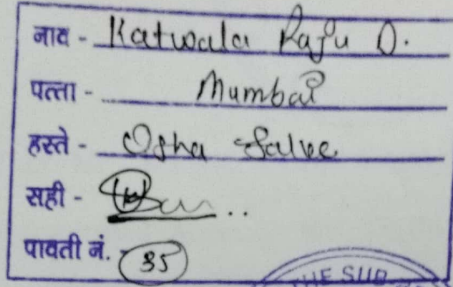 नाव - Katwala Raju D.
पत्ता - Mumbai
हस्ते - Usha Salve
सही -
पावती नं. - 35
THE SUB